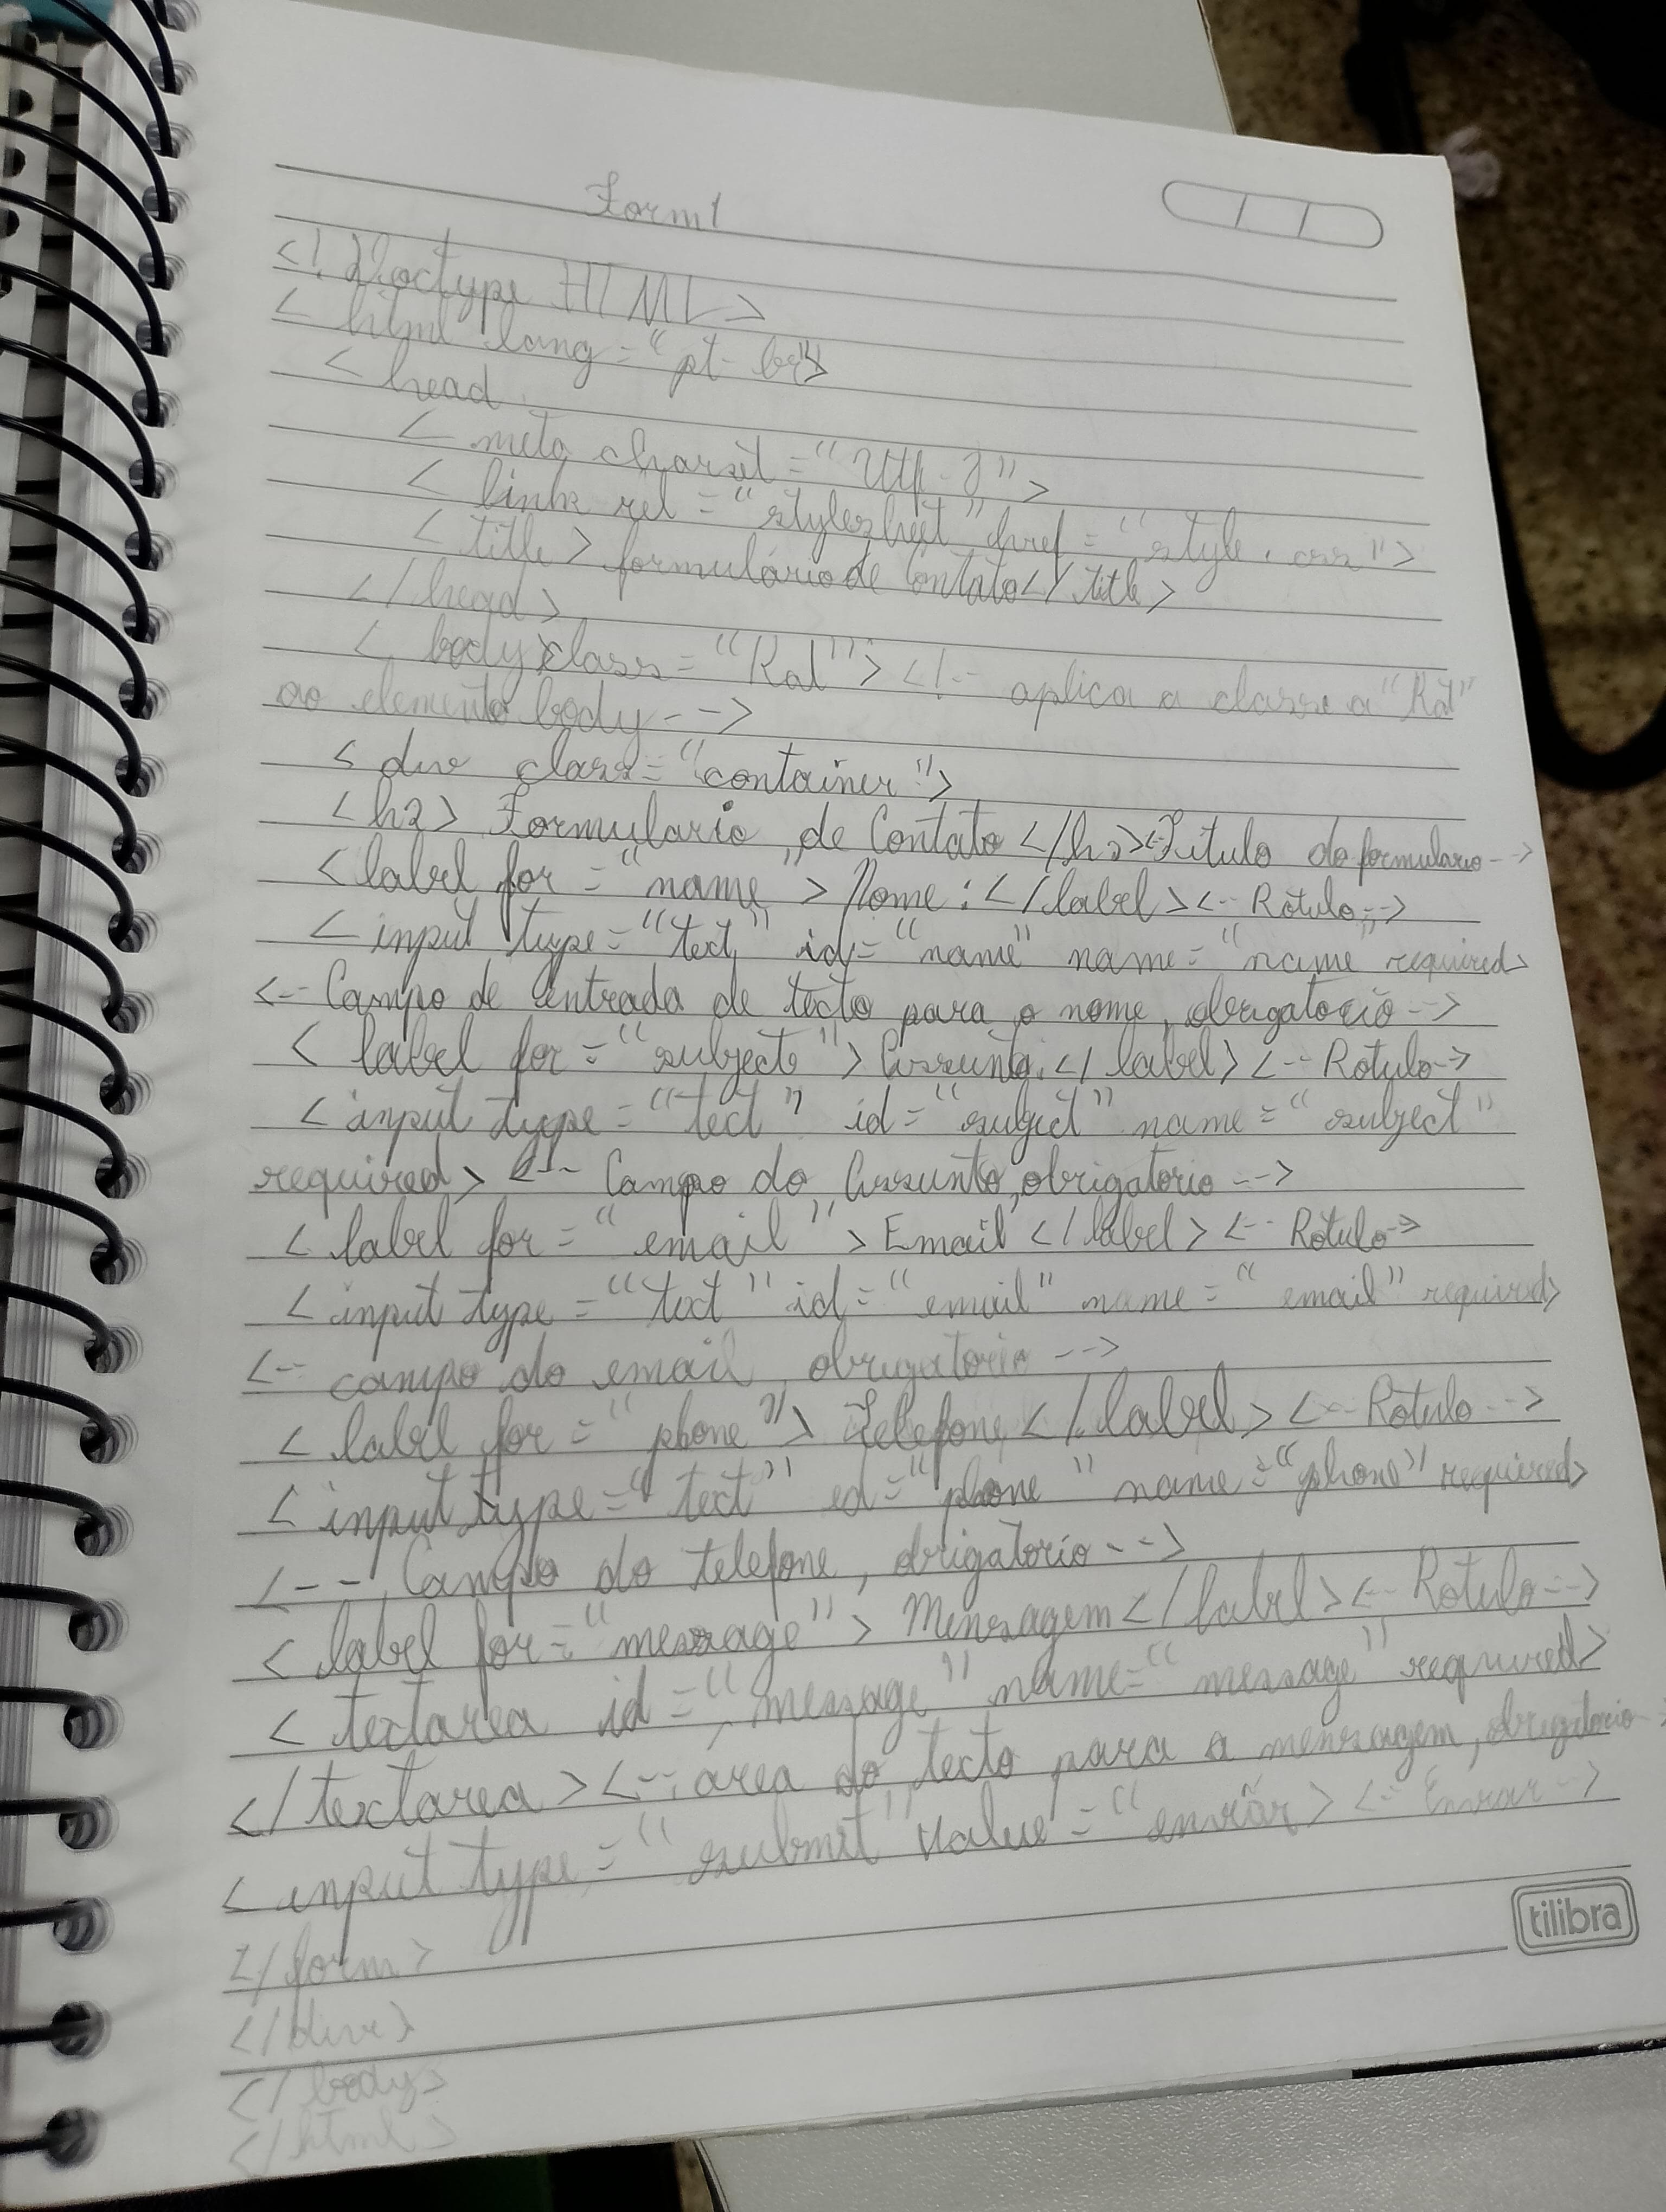 Form1
<! Doctype HTML>
< html lang = "pt-br">
< head
< meta charset = "Utf-8">
< link rel = "stylesheet" href = "style.css">
< title > formulário de Contato </ title >
</ head >
< body class = "Kat"> <!-- aplica a classe a "Kat"
ao elemento body -->
< div class = "container">
<h2> Formulario de Contato </h2> <- Título do formulario -->
< label for = "name" > Nome : </ label > <-- Rótulo -->
< input type = "text" id = "name" name = "name" required>
<-- Campo de entrada de texto para o nome, obrigatorio -->
< label for = "subject" > Assunto: </ label > <-- Rotulo ->
< input type = "text" id = "subject" name = "subject"
required > <-- Campo do Assunto, obrigatorio -->
< label for = "email" > Email </ label > <-- Rótulo ->
< input type = "text" id = "email" name = "email" required>
<-- campo do email, obrigatorio -->
< label for = "phone" > Telefone </ label > <-- Rótulo -->
< input type = "text" id = "phone" name = "phone" required>
<-- Campo do telefone, obrigatorio -->
< label for = "message" > Mensagem </ label > <-- Rotulo -->
< textarea id = "message" name = "message" required>
</ textarea > <-- área do texto para a mensagem, obrigatorio ->
< input type = "submit" value = "enviar > <-- Enviar -->
</ form >
</ div >
</ body >
</ html >
tilibra